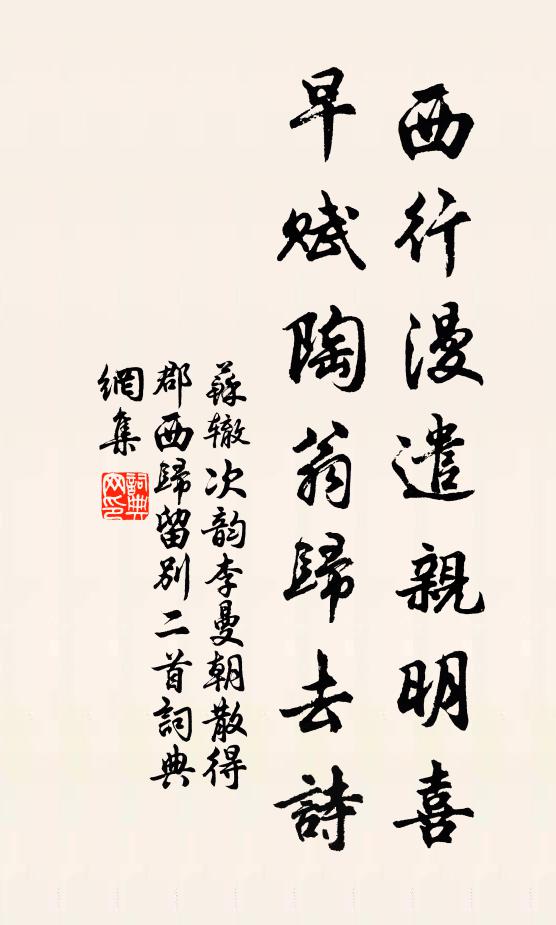 西行漫遣親明喜
早賦陶翁歸去詩
蘇辙次韵李曼朝散得
郡西歸留别二首詞典
網集
詞典
网印